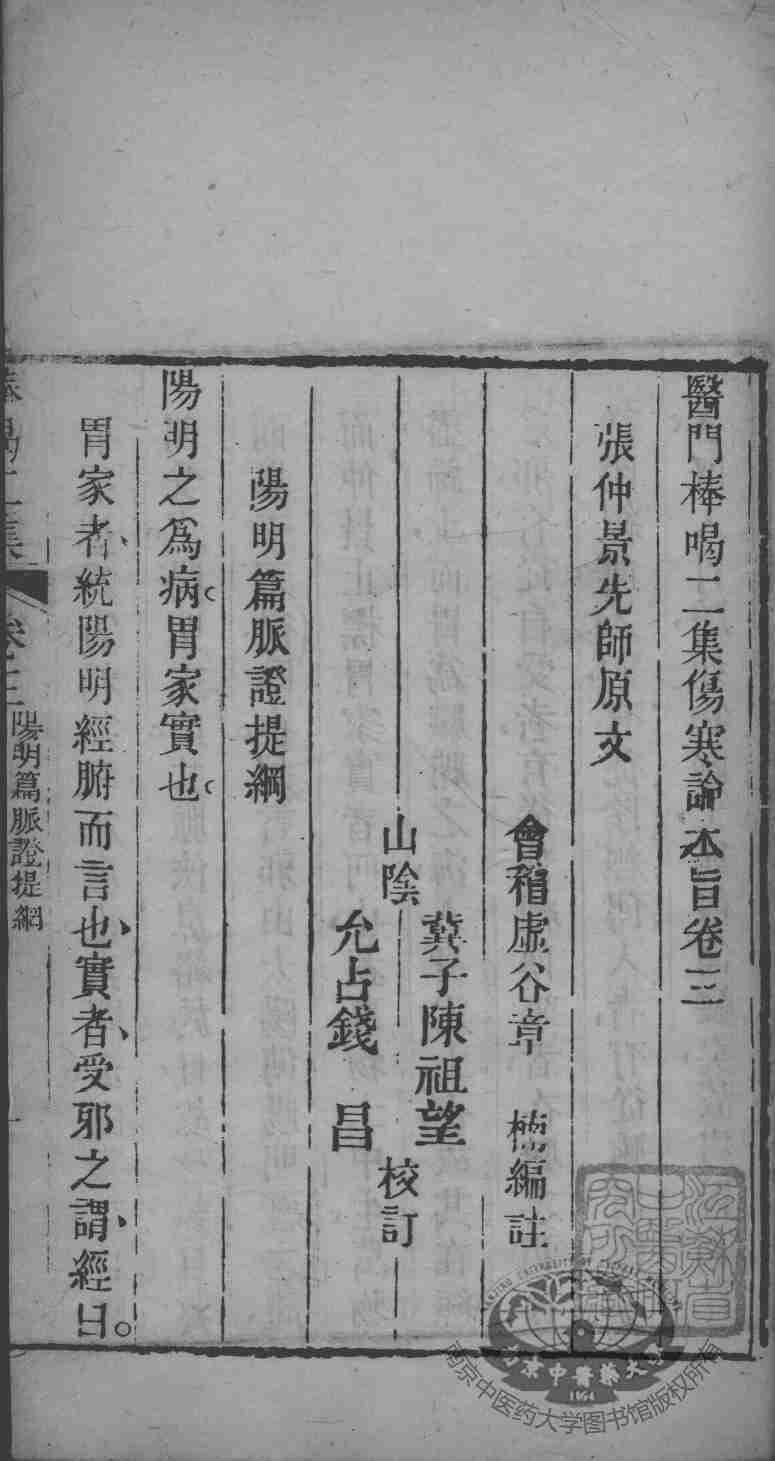 醫門棒喝二集傷寒論本旨卷三
張仲景先師原文
會稽虛谷章　楠編註
山陰
蓂子陳祖望
允占錢　昌
校訂
陽明篇脈證提綱
陽明之爲病。胃家實也。
胃家者、統陽明經腑而言也、實者、受邪之謂、經曰。
棒喝二集
卷三
陽明篇脈證提綱
一
江蘇省
中醫
南京中醫藥大學
1954
南京中医药大学图书馆版权所有